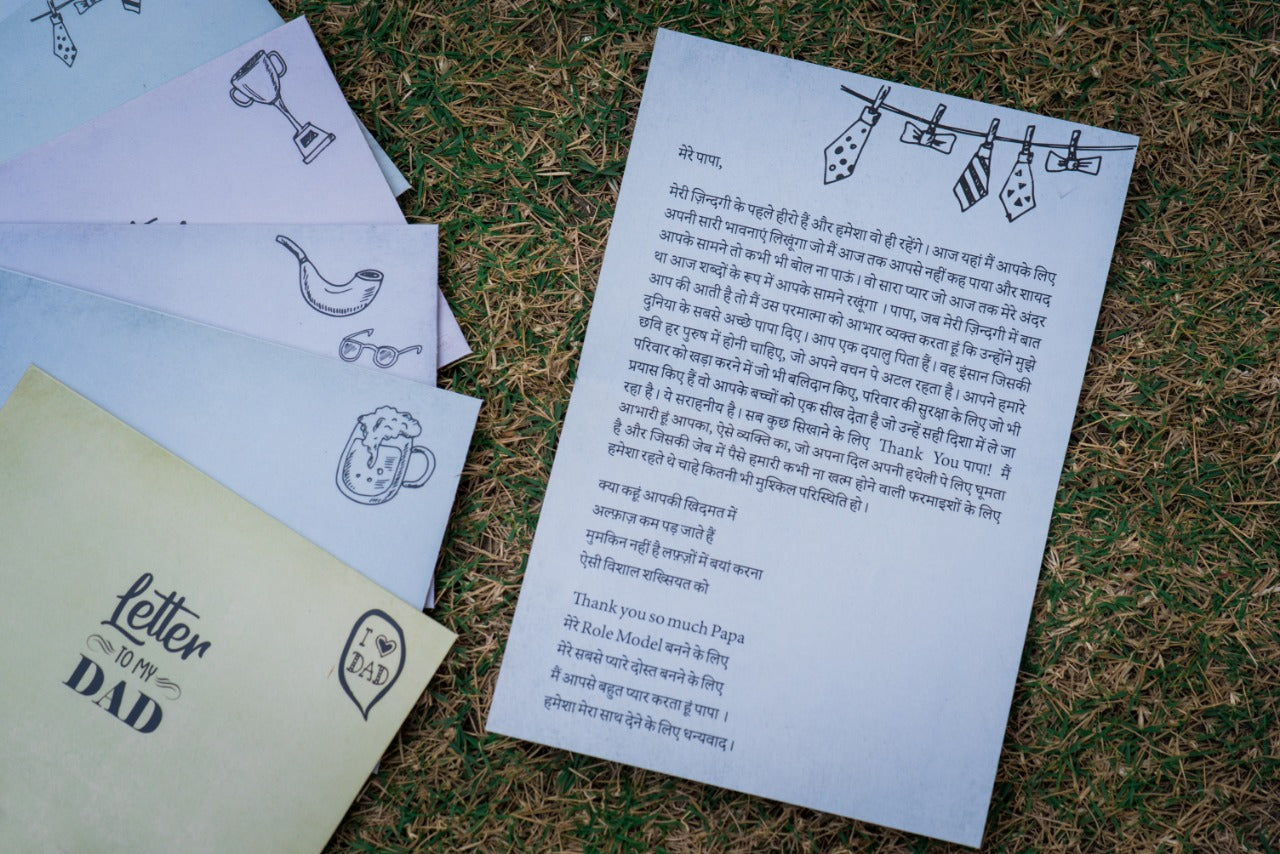 Letter
TO MY
DAD
I
DAD
मेरे पापा,
मेरी ज़िन्दगी के पहले हीरो हैं और हमेशा वो ही रहेंगे। आज यहां मैं आपके लिए
अपनी सारी भावनाएं लिखूंगा जो मैं आज तक आपसे नहीं कह पाया और शायद
आपके सामने तो कभी भी बोल ना पाऊं। वो सारा प्यार जो आज तक मेरे अंदर
था आज शब्दों के रूप में आपके सामने रखूंगा। पापा, जब मेरी ज़िन्दगी में बात
आप की आती है तो मैं उस परमात्मा को आभार व्यक्त करता हूं कि उन्होंने मुझे
दुनिया के सबसे अच्छे पापा दिए। आप एक दयालु पिता हैं। वह इंसान जिसकी
छवि हर पुरुष में होनी चाहिए, जो अपने वचन पे अटल रहता है। आपने हमारे
परिवार को खड़ा करने में जो भी बलिदान किए, परिवार की सुरक्षा के लिए जो भी
प्रयास किए हैं वो आपके बच्चों को एक सीख देता है जो उन्हें सही दिशा में ले जा
रहा है। ये सराहनीय है। सब कुछ सिखाने के लिए Thank You पापा! मैं
आभारी हूं आपका, ऐसे व्यक्ति का, जो अपना दिल अपनी हथेली पे लिए घूमता
है और जिसकी जेब में पैसे हमारी कभी ना खत्म होने वाली फरमाइशों के लिए
हमेशा रहते थे चाहे कितनी भी मुश्किल परिस्थिति हो।
क्या कहूं आपकी खिदमत में
अल्फ़ाज़ कम पड़ जाते हैं
मुमकिन नहीं है लफ़्ज़ों में बयां करना
ऐसी विशाल शख्सियत को
Thank you so much Papa
मेरे Role Model बनने के लिए
मेरे सबसे प्यारे दोस्त बनने के लिए
मैं आपसे बहुत प्यार करता हूं पापा ।
हमेशा मेरा साथ देने के लिए धन्यवाद।